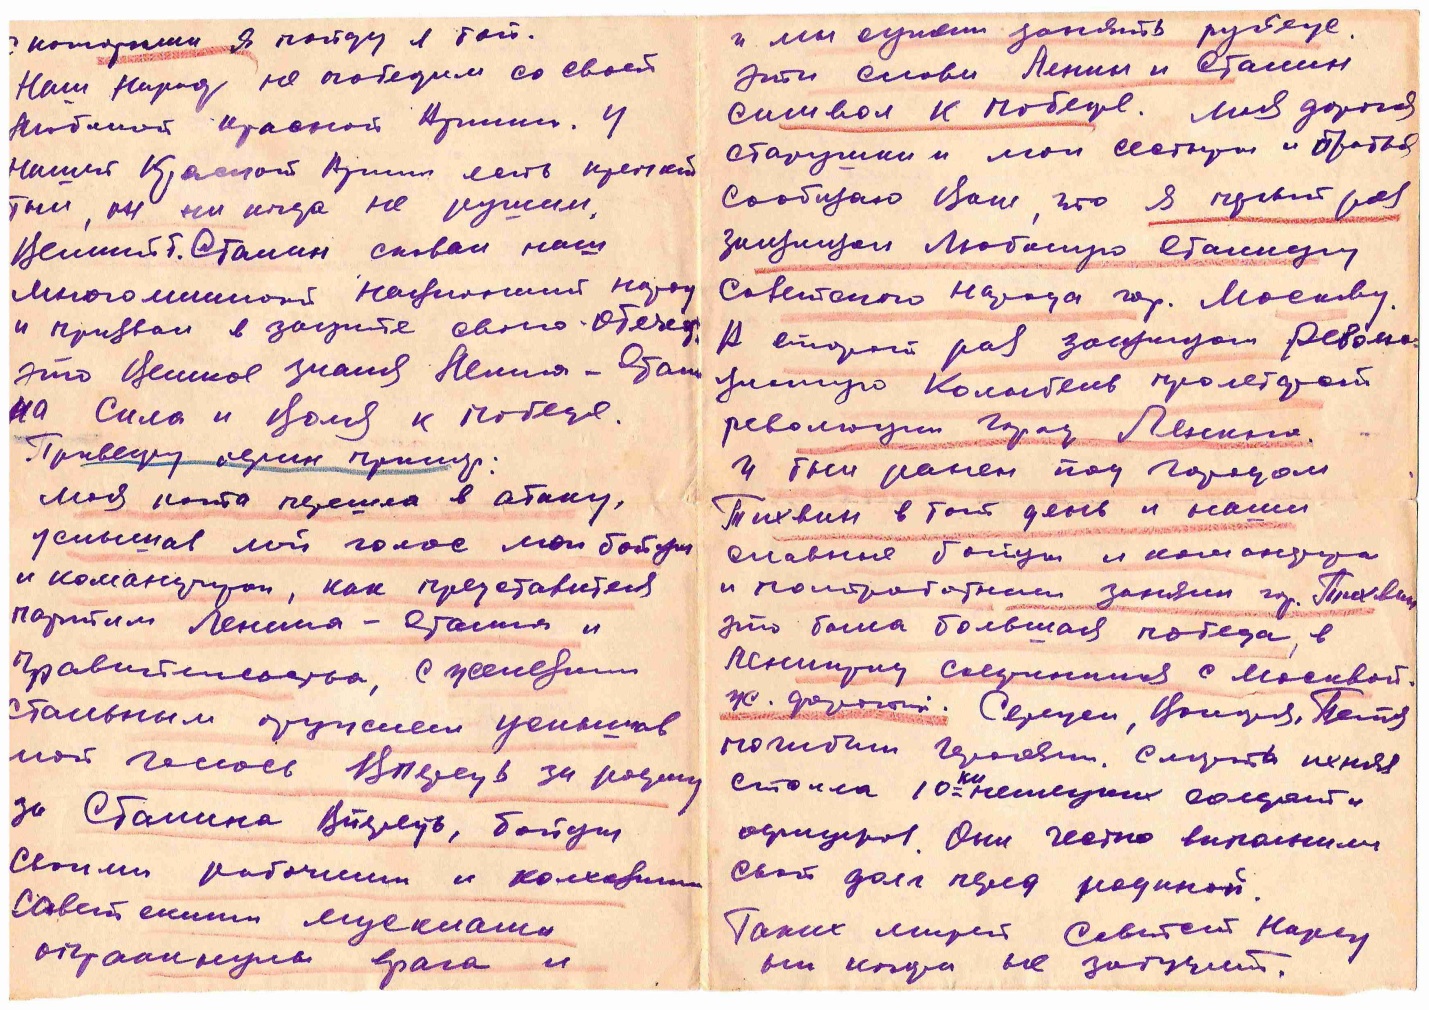 с которыми я пойду в бой.
Наш народ не победим со своей
любимой красной Армии. У
нашей Красной Армии есть крепкий
тыл, он ни когда не рушим,
Великий т. Сталин сковал наш
многомилионой народ
и призвал в защите своего Отечес.
это Великое знамя Ленина – Стали
на Сила и Воля к победе.
Приведу один пример:
моя рота перешла в атаку,
услышав мой голос мои бойцы
и командиры, как представителя
партии Ленина – Сталина и
Правительства, с
стальным оружием услышав
мой голось Впередь за родину
за Сталина Вперед, бойцы
своими рабочими и колхозными
советскими мускулами
опракинули врага и
и мы сумели занять рубеж.
эти слова Ленин и Сталин
символ к победе. Моя дорогая
старушка и мои сестры и братья
сообщаю Вам, что я первый раз
защищал любимую столицу
Советского народа гор. Москву.
А второй раз защищал Револю-
ционную Колыбель пролетарской
революции город Ленина.
И был ранен под городом
Тихвин в той день и наши
славные бойцы и командира
и политработники заняли гор. Тихвин
это была большая победа, в
Ленинград соединился с Москвой.
ж. дорогой. Сергей, Володя, Петя
погибли героями. Смерть ихняя
стоила 10ки немецких солдат и
офицеров. Они честно выполнили
свой долг перед родиной.
Таких людей Советский Народ
ни когда не забудет.